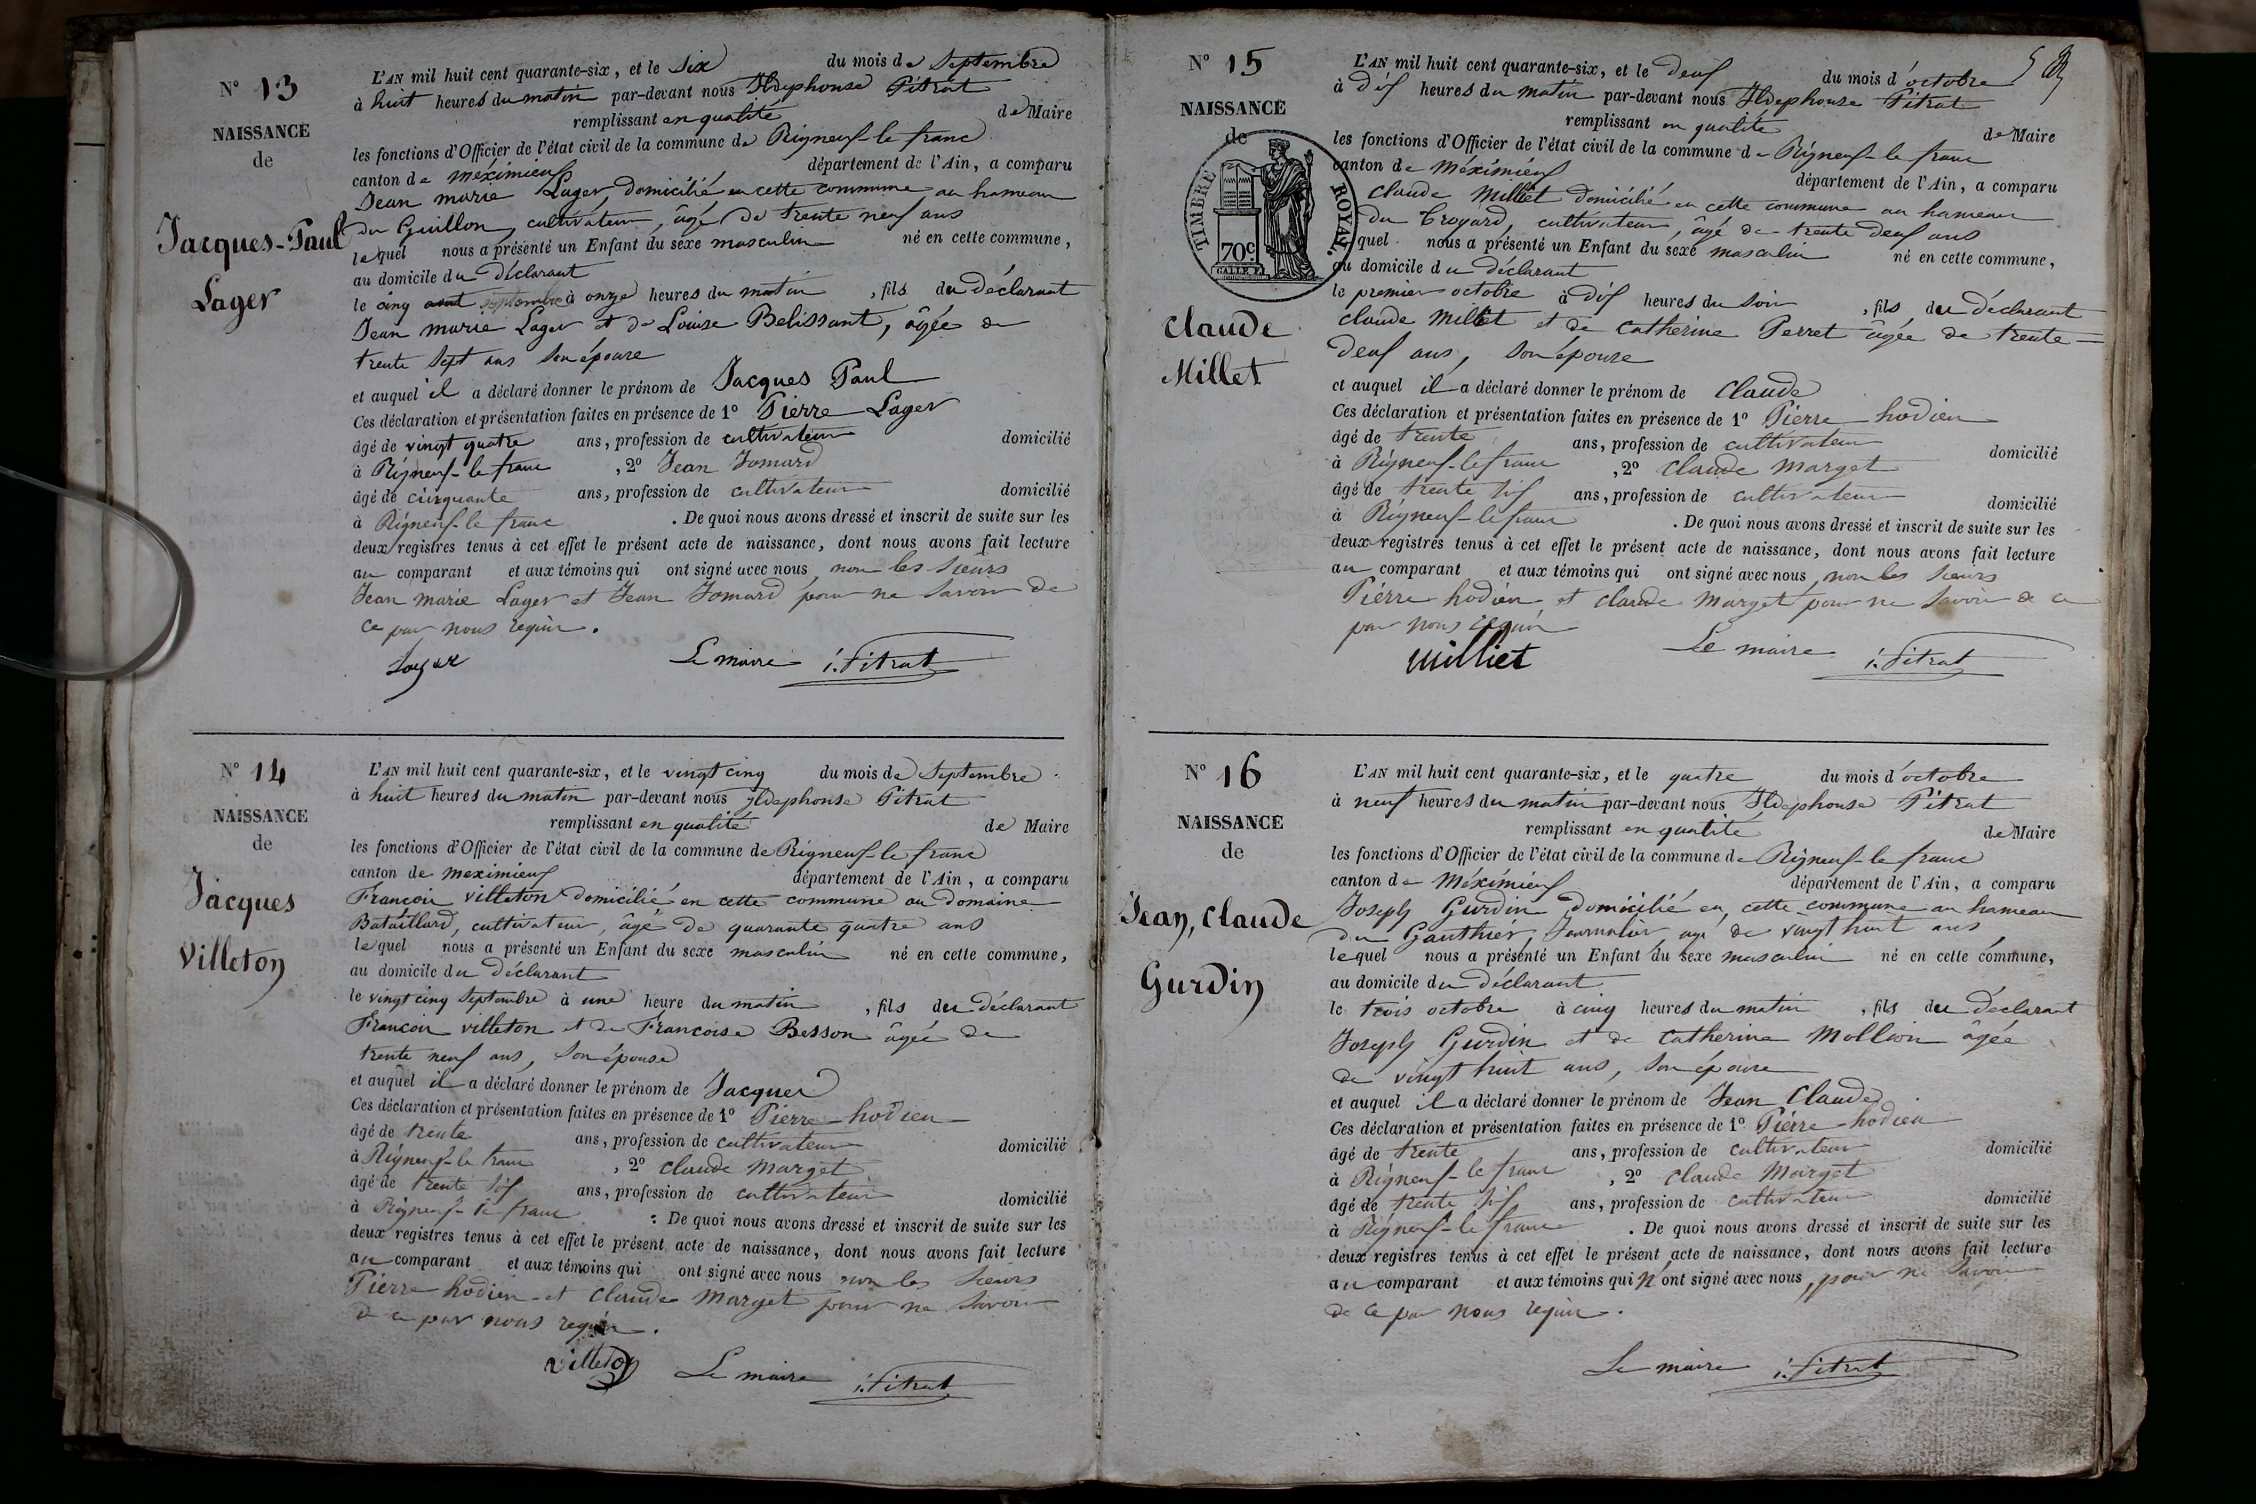 N° 13
NAISSANCE
de
Jacques-Paul
Lager
L'AN mil huit cent quarante-six, et le six du mois de Septembre
à huit heures du matin par-devant nous Ildephonse Pitrat
remplissant en qualité de Maire
les fonctions d'Officier de l'état civil de la commune de Rigneuf-le franc
canton de méximieux département de l'Ain, a comparu
Jean marie Lager, domicilié en cette commune au hameau
du Guillon, cultivateur, âgé de trente neuf ans
lequel nous a présenté un Enfant du sexe masculin né en cette commune,
au domicile du déclarant
le cinq août septembre à onze heures du matin, fils du déclarant
Jean marie Lager et de Louise Belissant, âgée de
trente sept ans son épouse
et auquel il a déclaré donner le prénom de Jacques Paul
Ces déclaration et présentation faites en présence de 1° Pierre Lager
âgé de vingt quatre ans, profession de cultivateur domicilié
à Rigneuf-le franc, 2° Jean Jomard
âgé de cinquante ans, profession de cultivateur domicilié
à Rigneuf-le franc. De quoi nous avons dressé et inscrit de suite sur les
deux registres tenus à cet effet le présent acte de naissance, dont nous avons fait lecture
au comparant et aux témoins qui ont signé avec nous, non les sieurs
Jean marie Lager et Jean Jomard pour ne savoir de
ce par nous requir.
Lager Le maire i. Pitrat
N° 14
NAISSANCE
de
Jacques
Villeton
L'AN mil huit cent quarante-six, et le vingt cinq du mois de Septembre
à huit heures du matin par-devant nous Ildephonse Pitrat
remplissant en qualité de Maire
les fonctions d'Officier de l'état civil de la commune de Rigneuf-le franc
canton de meximieux département de l'Ain, a comparu
François villeton domicilié en cette commune au domaine
Bataillard, cultivateur, âgé de quarante quatre ans
lequel nous a présenté un Enfant du sexe masculin né en cette commune,
au domicile du déclarant
le vingt cinq Septembre à une heure du matin, fils du déclarant
François villeton et de Françoise Besson âgée de
trente neuf ans, son épouse
et auquel il a déclaré donner le prénom de Jacques
Ces déclaration et présentation faites en présence de 1° Pierre hodieu
âgé de trente ans, profession de cultivateur domicilié
à Rigneuf-le franc, 2° claude marget
âgé de trente six ans, profession de cultivateur domicilié
à Rigneuf-le franc. De quoi nous avons dressé et inscrit de suite sur les
deux registres tenus à cet effet le présent acte de naissance, dont nous avons fait lecture
au comparant et aux témoins qui ont signé avec nous non les sieurs
Pierre hodieu et claude marget pour ne savoir
de ce par nous requir.
villeton Le maire i. Pitrat
N° 15
NAISSANCE
de
TIMBRE ROYAL.
70c
Claude
Millet
L'AN mil huit cent quarante-six, et le deux du mois d'octobre
à dix heures du matin par-devant nous Ildephonse Pitrat
remplissant en qualité de Maire
les fonctions d'Officier de l'état civil de la commune de Rigneuf-le franc
canton de Méximieux département de l'Ain, a comparu
Claude Milliet domicilié en cette commune au hameau
du Croyard, cultivateur, âgé de trente deux ans
quel nous a présenté un Enfant du sexe masculin né en cette commune,
au domicile du déclarant
le premier octobre à dix heures du soir, fils du déclarant
claude Milliet et de Catherine Perret âgée de trente
deux ans, son épouse
et auquel il a déclaré donner le prénom de Claude
Ces déclaration et présentation faites en présence de 1° Pierre hodieu
âgé de trente ans, profession de cultivateur domicilié
à Rigneuf-le franc, 2° claude marget
âgé de trente six ans, profession de cultivateur domicilié
à Rigneuf-le franc. De quoi nous avons dressé et inscrit de suite sur les
deux registres tenus à cet effet le présent acte de naissance, dont nous avons fait lecture
au comparant et aux témoins qui ont signé avec nous, non les sieurs
Pierre hodieu et claude marget pour ne savoir de ce
par nous requir
Milliet Le maire i. Pitrat
N° 16
NAISSANCE
de
Jean, Claude
Gurdin
L'AN mil huit cent quarante-six, et le quatre du mois d'octobre
à neuf heures du matin par-devant nous Ildephonse Pitrat
remplissant en qualité de Maire
les fonctions d'Officier de l'état civil de la commune de Rigneuf-le franc
canton de Méximieux département de l'Ain, a comparu
Joseph Gurdin domicilié en cette commune au hameau
du Gauthier, Journalier âgé de vingt huit ans
lequel nous a présenté un Enfant du sexe masculin né en cette commune,
au domicile du déclarant
le trois octobre à cinq heures du matin, fils du déclarant
Joseph Gurdin et de Catherine Mollion âgée
de vingt huit ans, son épouse
et auquel il a déclaré donner le prénom de Jean Claude
Ces déclaration et présentation faites en présence de 1° Pierre hodieu
âgé de trente ans, profession de cultivateur domicilié
à Rigneuf-le franc, 2° Claude Marget
âgé de trente six ans, profession de cultivateur domicilié
à Rigneuf-le franc. De quoi nous avons dressé et inscrit de suite sur les
deux registres tenus à cet effet le présent acte de naissance, dont nous avons fait lecture
au comparant et aux témoins qui n'ont signé avec nous, pour ne savoir
de ce par nous requir.
Le maire i. Pitrat